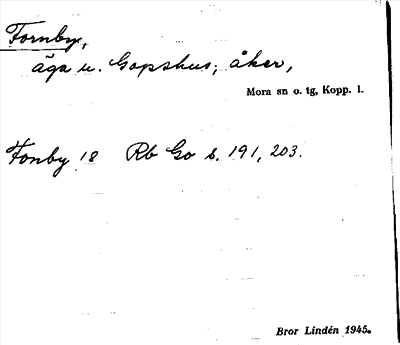 Fornby,
äga u. Gopshus; åker,
Mora sn o. tg, Kopp. l.
Fonby 18 Rb Go s. 191, 203.
Bror Lindén 1945.